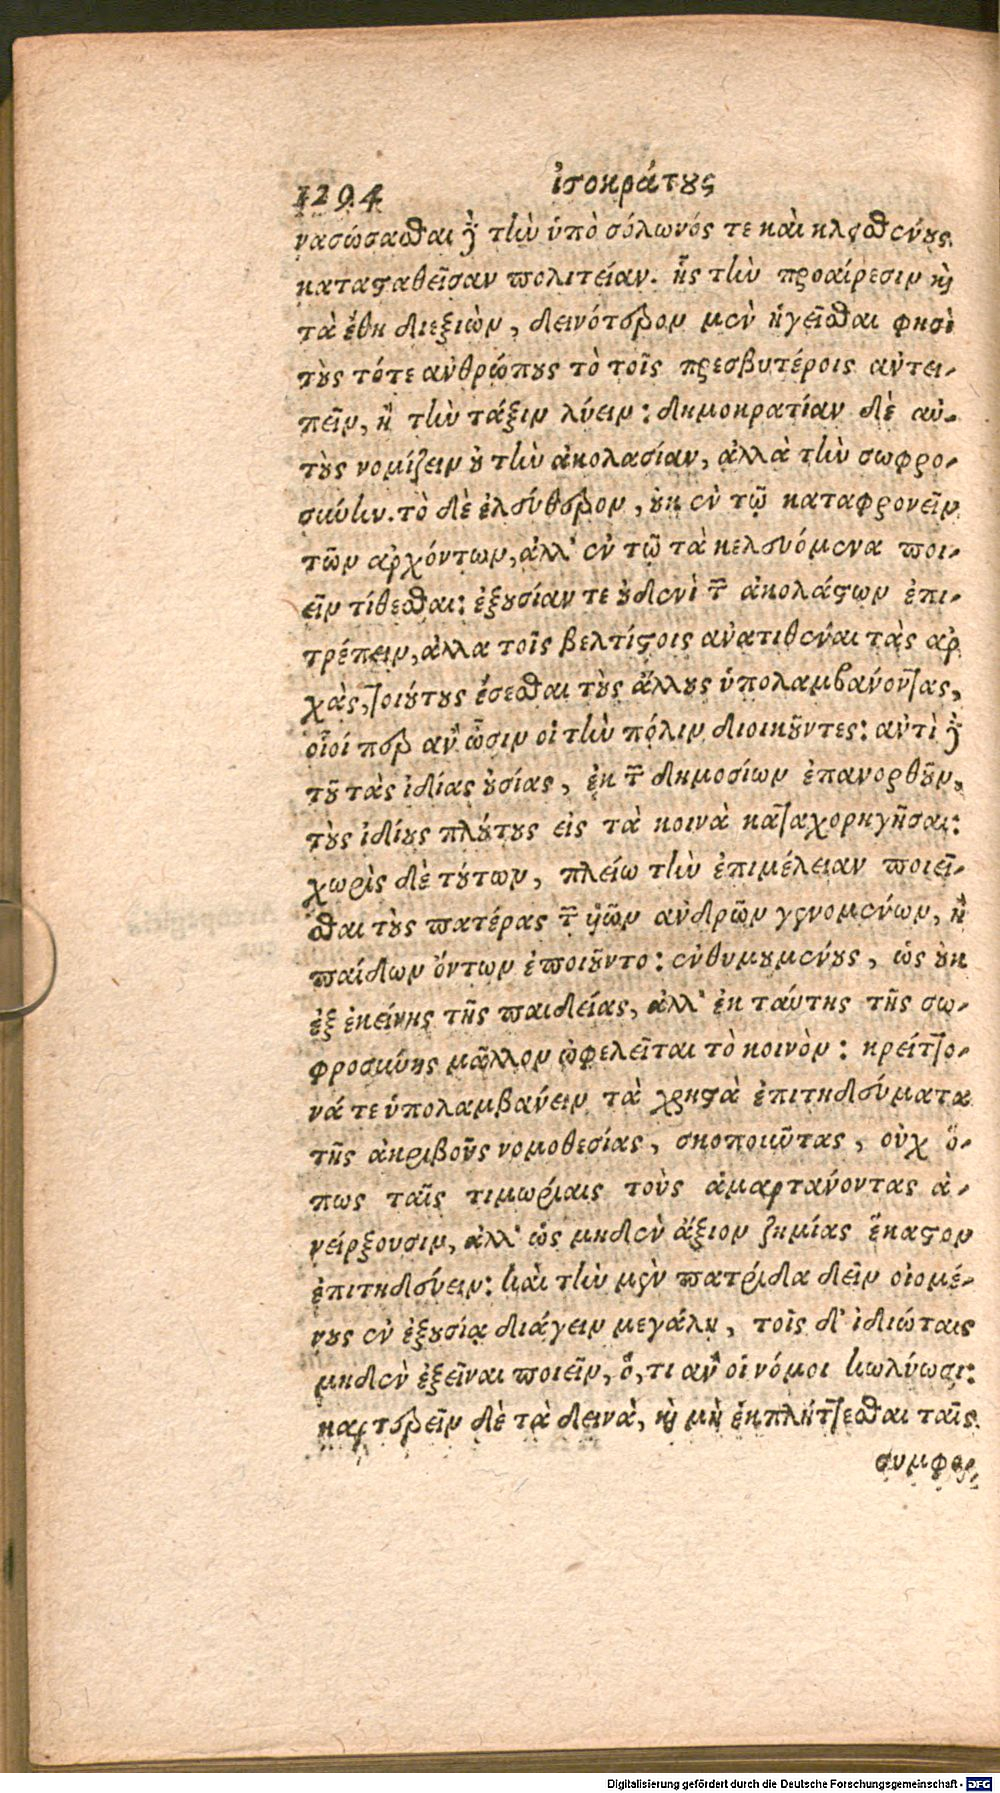 1294 ἰσοκράτους
νασώσασθαι τὴν ὑπὸ σόλωνός τε καὶ κλεισθένους
κατασταθεῖσαν πολιτείαν. ἧς τὴν προαίρεσιν καὶ
τὰ ἔθη διεξιὼν, δεινότερον μὲν ἡγεῖσθαι φησὶ
τοὺς τότε ἀνθρώπους τὸ τοῖς πρεσβυτέροις ἀντει-
πεῖν, ἢ τὴν τάξιν λύειν: δημοκρατίαν δὲ αὐ-
τοὺς νομίζειν οὐ τὴν ἀκολασίαν, ἀλλὰ τὴν σωφρο-
σύνην. τὸ δὲ ἐλεύθερον, οὐκ ἐν τῷ καταφρονεῖν
τῶν ἀρχόντων, ἀλλ' ἐν τῷ τὰ κελευόμενα ποι-
εῖν τίθεσθαι: ἐξουσίαν τε οὐδενὶ τῶν ἀκολάστων ἐπι-
τρέπειν, ἀλλα τοῖς βελτίστοις ἀνατιθέναι τὰς ἀρ
χὰς, τοιούτους ἔσεσθαι τοὺς ἄλλους ὑπολαμβάνοντας,
οἷοί περ ἂν ὦσιν οἱ τὴν πόλιν διοικοῦντες: ἀντὶ
τοῦ τὰς ἰδίας οὐσίας, ἐκ τῶν δημοσίων ἐπανορθοῦν,
τοὺς ἰδίους πλούτους εἰς τὰ κοινὰ καταχορηγῆσαι:
χωρὶς δὲ τούτων, πλείω τὴν ἐπιμέλειαν ποιεῖ-
σθαι τοὺς πατέρας τῶν ὑῶν ἀνδρῶν γενομένων, ἢ
παίδων ὄντων ἐποιοῦντο: ἐνθυμουμένους, ὡς οὐκ
ἐξ ἐκείνης τῆς παιδείας, ἀλλ' ἐκ ταύτης τῆς σω-
φροσύνης μᾶλλον ὠφελεῖται τὸ κοινὸν: κρείττο-
νά τε ὑπολαμβάνειν τὰ χρηστὰ ἐπιτηδεύματα
τῆς ἀκριβοῦς νομοθεσίας, σκοποιοῦτας, οὐχ ὅ-
πως ταῖς τιμωρίαις τοὺς ἁμαρτάνοντας ἀ-
νείρξουσιν, ἀλλ' ὡς μηδὲν ἄξιον ζημίας ἕκαστον
ἐπιτηδεύειν: καὶ τὴν μὲν πατρίδα δεῖν οἰομέ-
νους ἐν ἐξουσίᾳ διάγειν μεγάλῃ, τοῖς δ' ἰδιώταις
μηδὲν ἐξεῖναι ποιεῖν, ὅ,τι ἂν οἱ νόμοι κωλύωσι:
καρτερεῖν δὲ τὰ δεινὰ, καὶ μὴ ἐκπλήττεσθαι ταῖς
συμφορ